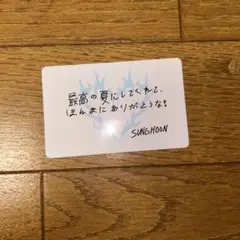 最高の夏にしてくれて、
ほんまにありがとうな!
SUNGHOON